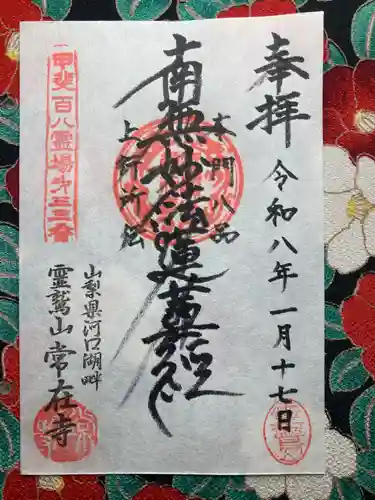 奉拝
令和八年一月十七日
本門八品
南無妙法蓮華経
上行所伝
甲斐百八霊場第三三番
山梨県河口湖畔
霊鷲山 常在寺